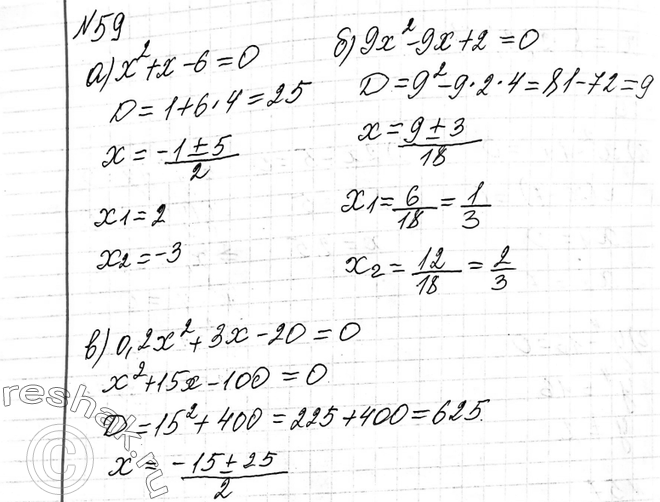 №59
а) x²+x-6=0
D=1+6*4=25
x=-1±5/2
x1=2
x2=-3
б) 9x²-9x+2=0
D=9²-9*2*4=81-72=9
x=9±3/18
x1=6/18=1/3
x2=12/18=2/3
в) 0,2x²+3x-20=0
x²+15x-100=0
D=15²+400=225+400=625.
x=-15±25/2
©reshak.ru